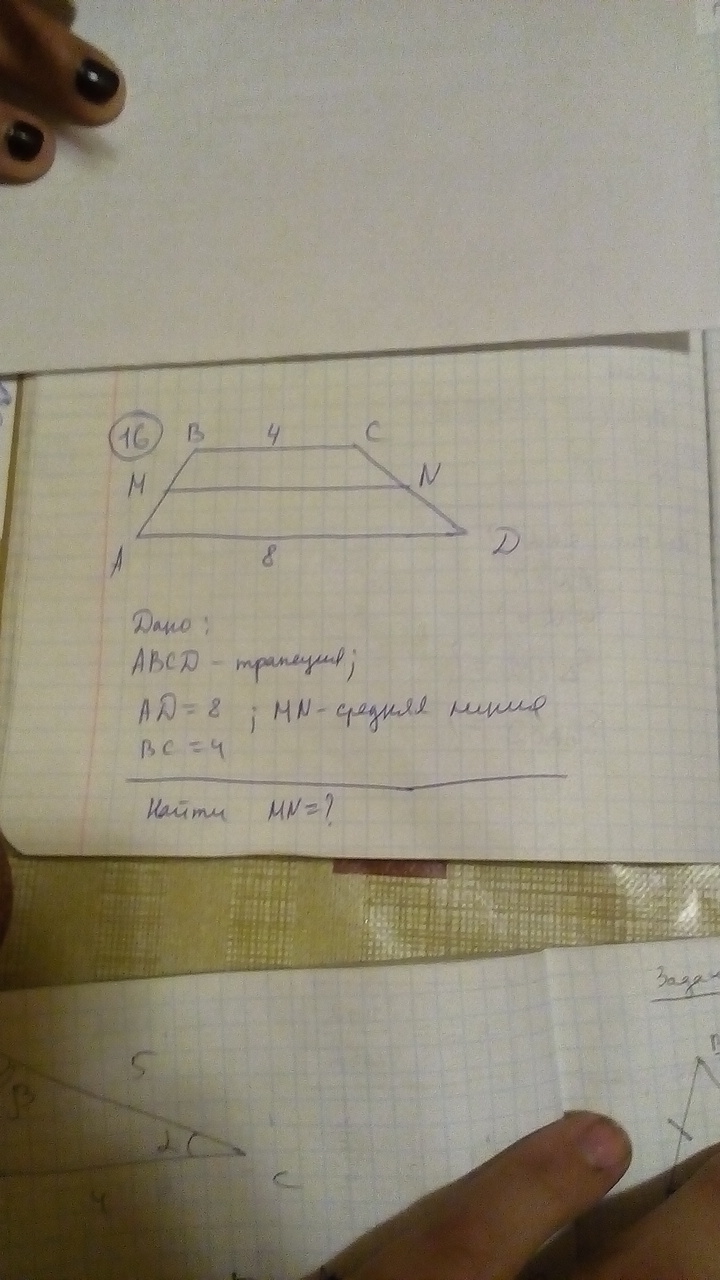 16
B 4 C
M N
A 8 D
Дано:
ABCD - трапеция;
AD = 8 ; MN - средняя линия
BC = 4
Найти MN = ?
Задач
B
5
β
2
C
4